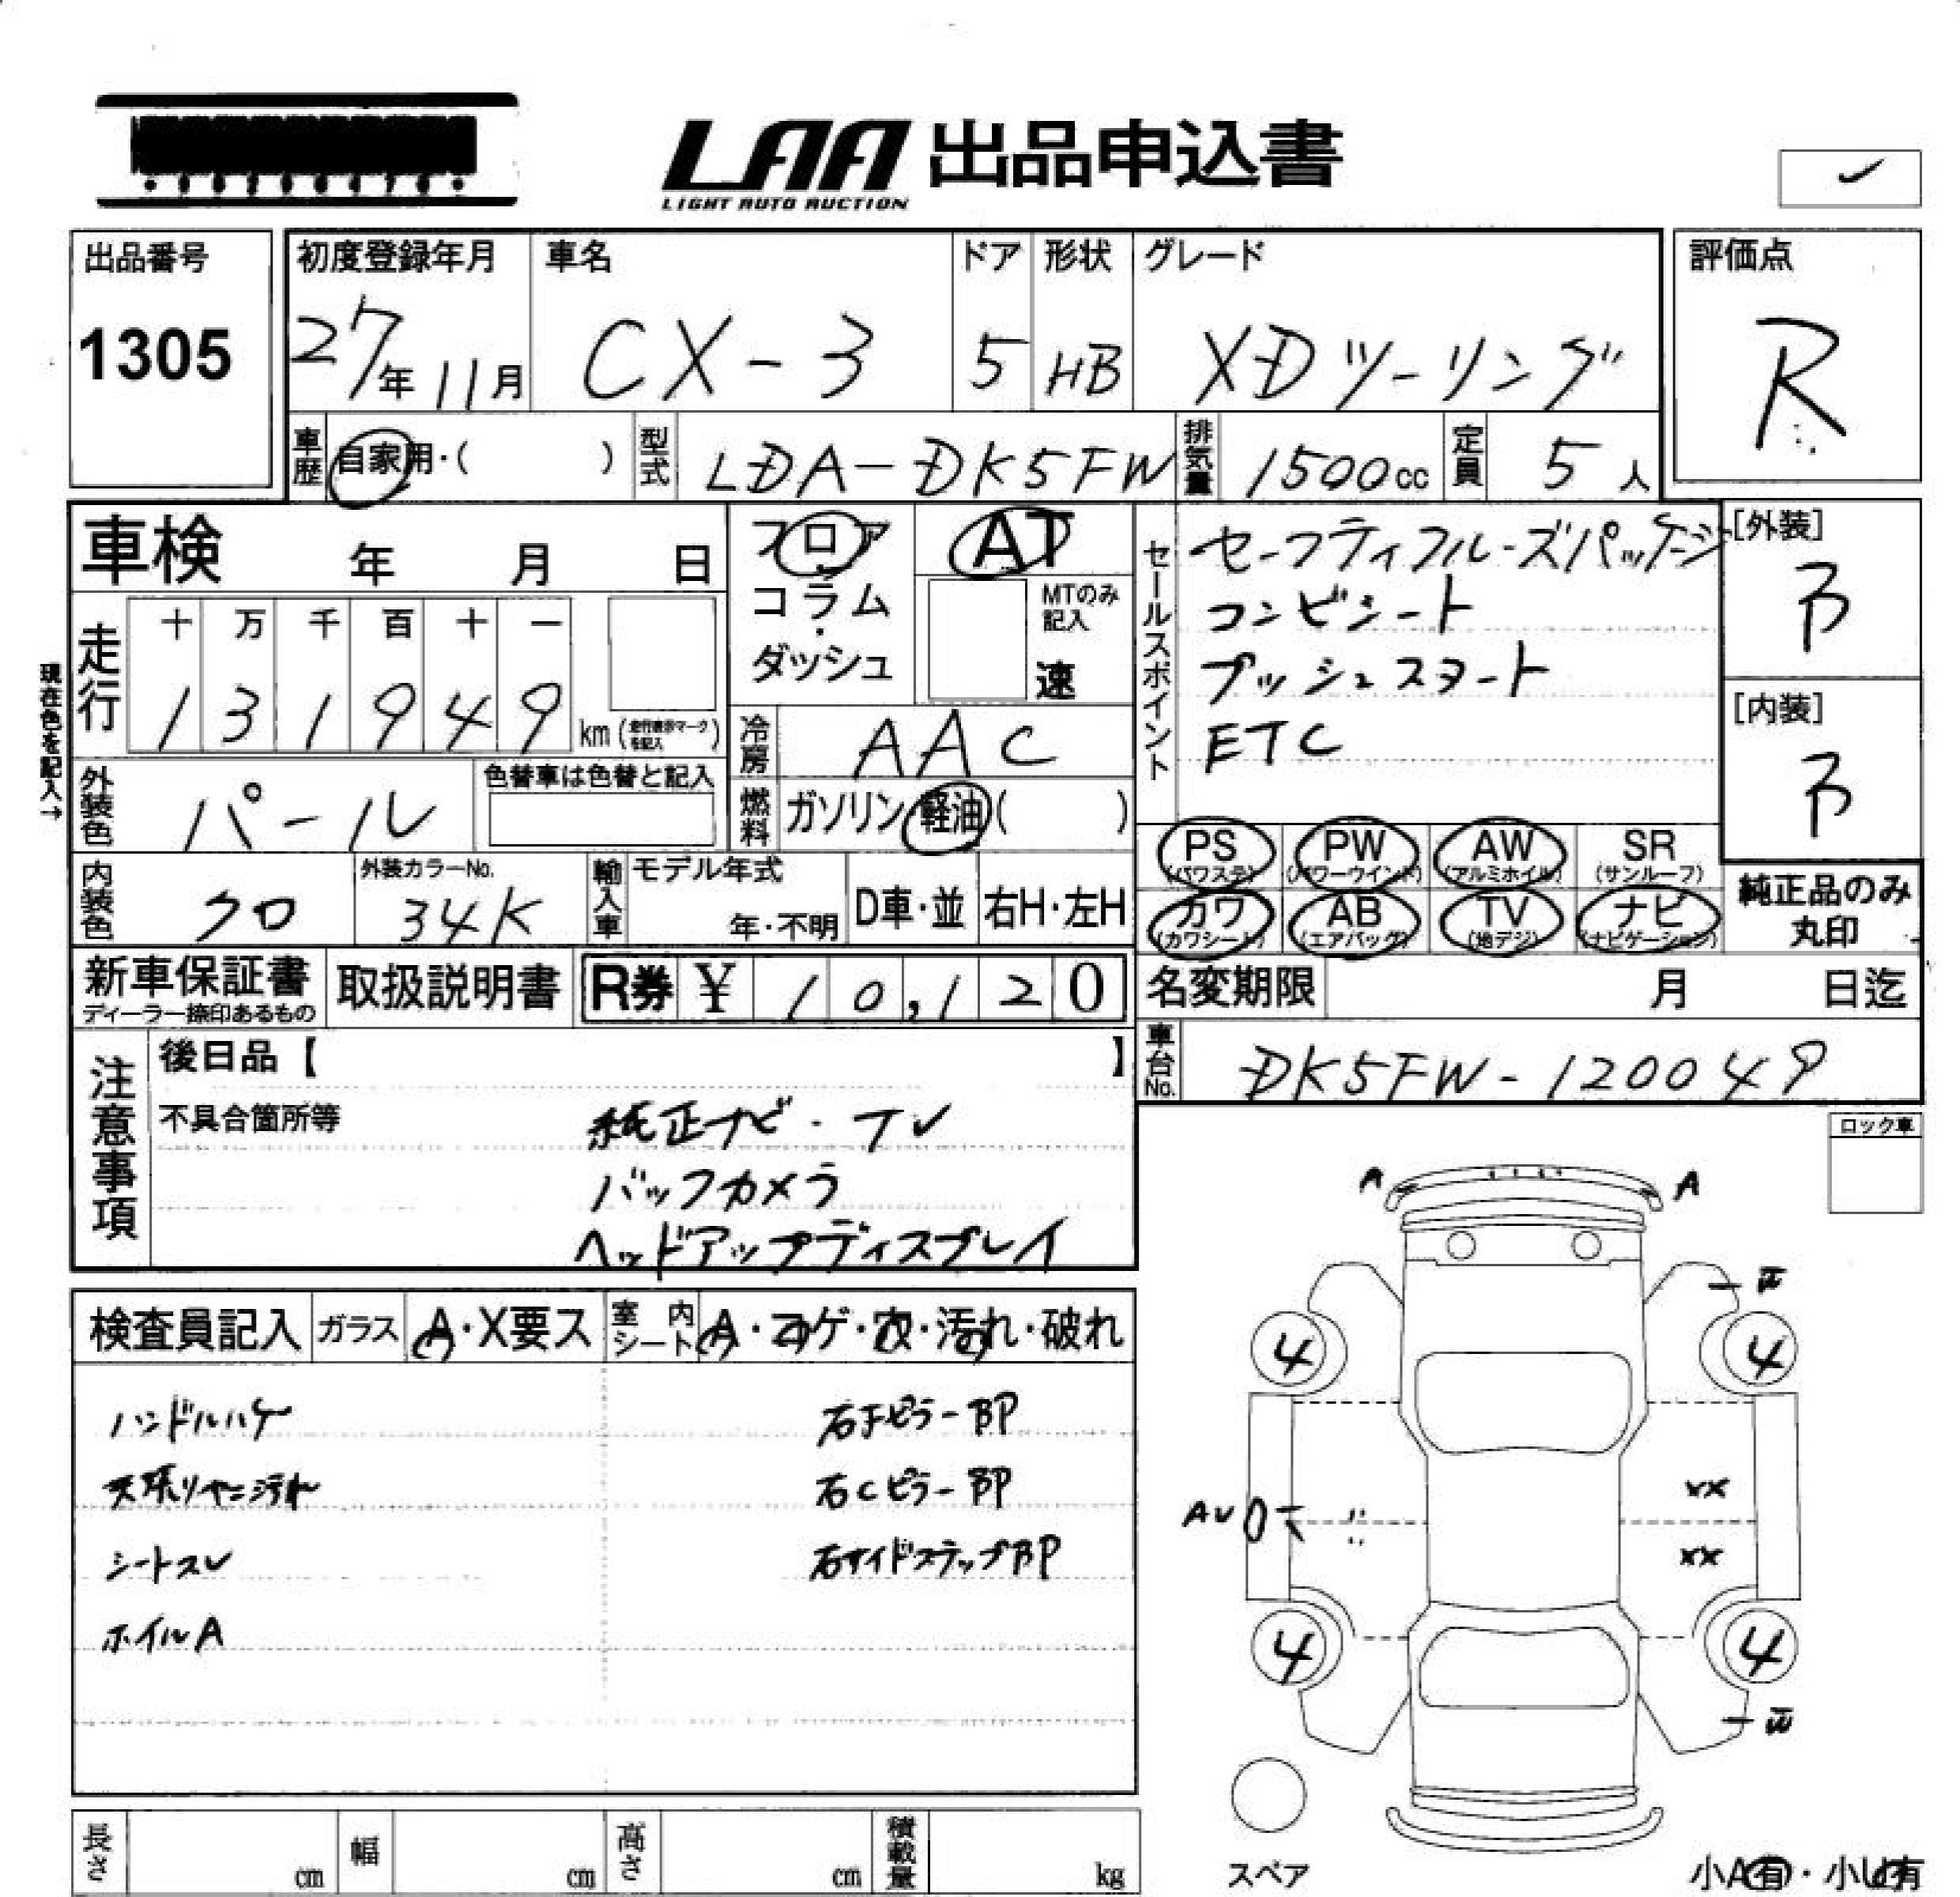 LAA 出品申込書
LIGHT AUTO AUCTION
出品番号
1305
初度登録年月
27年11月
車名
CX-3
ドア
5
形状
HB
グレード
XDツーリング
評価点
R
車歴
自家用・( )
型式
LDA-DK5FW
排気量
1500cc
定員
5人
車検 年 月 日
フロア
コラム
・
ダッシュ
AT
MTのみ
記入
速
セールスポイント
セーフティクルーズパッケージ
コンビシート
プッシュスタート
ETC
[外装]
[内装]
現在色を記入→
走行
十 万 千 百 十 一
1 3 1 9 4 9
km (走行表示マークを記入)
冷房
AAC
外装色
パール
色替車は色替と記入
燃料
ガソリン 軽油 ( )
内装色
クロ
外装カラーNo.
34K
輸入車
モデル年式
年・不明
D車・並
右H・左H
PS
(パワステ)
PW
(パワーウインド)
AW
(アルミホイル)
SR
(サンルーフ)
カワ
(カワシート)
AB
(エアバッグ)
TV
(地デジ)
ナビ
(ナビゲーション)
純正品のみ
丸印
新車保証書
ディーラー捺印あるもの
取扱説明書
R券 ¥ 10,120
名変期限 月 日迄
車台No.
DK5FW-120049
注意事項
後日品【 】
不具合箇所等
純正ナビ・TV
バックカメラ
ヘッドアップディスプレイ
ロック車
検査員記入
ガラス
A・X要ス
室内シート
A・コゲ・穴・汚れ・破れ
ハンドルハゲ
天張りヤニ汚れ
シートスレ
ホイルA
右Fピラー BP
右Cピラー BP
右サイドステップBP
A A
4 4
AU
XX
XX
4 4
スペア
小A有・小U有
長さ cm
幅 cm
高さ cm
積載量 kg